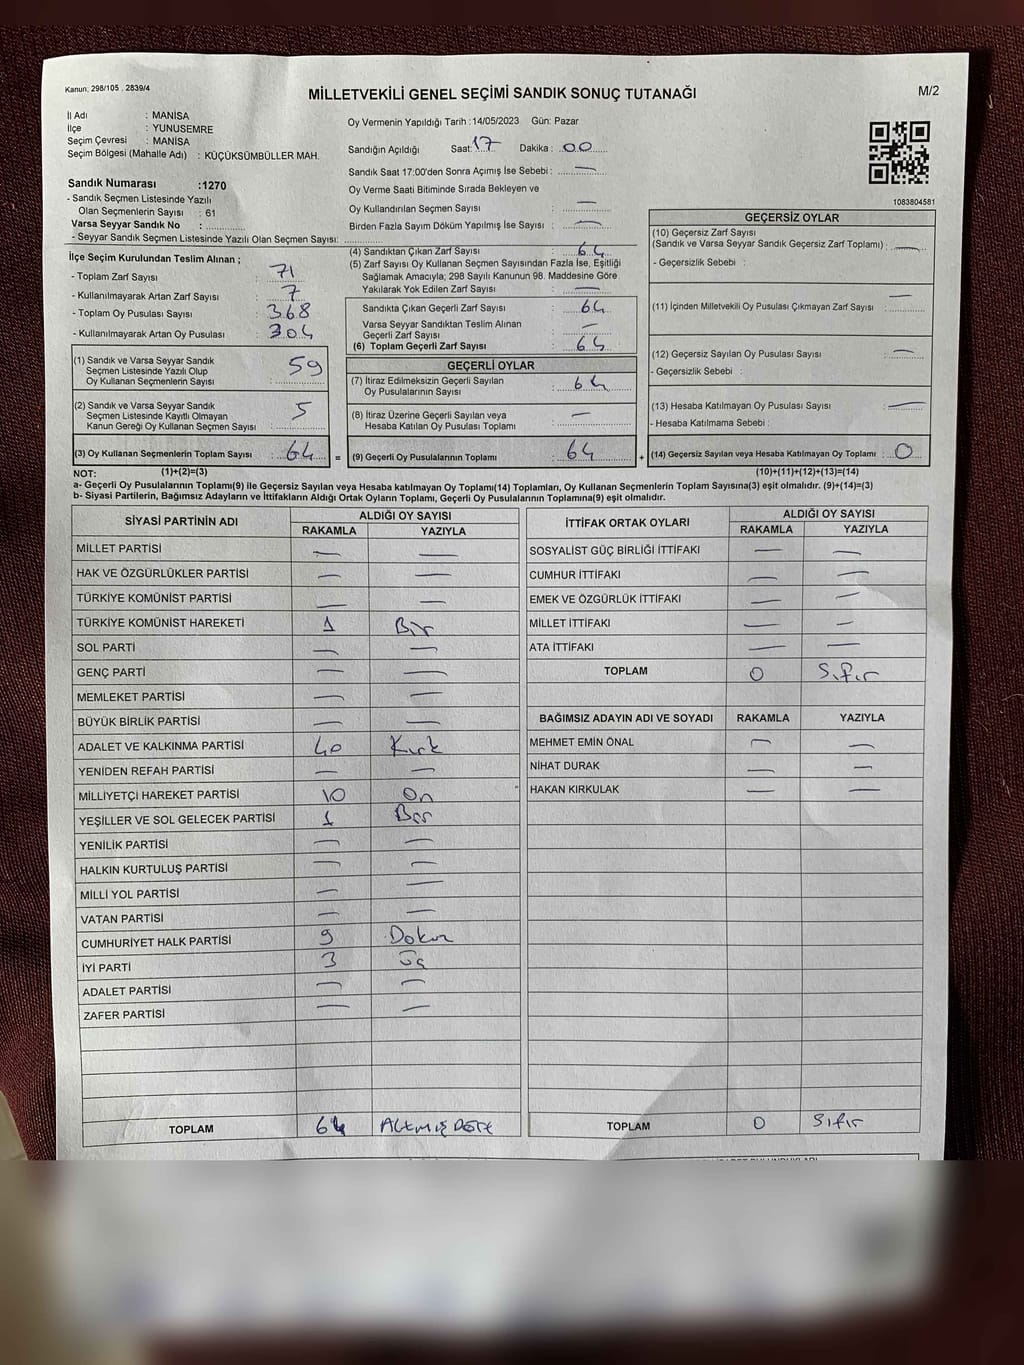 Kanun; 298/105 , 2839/4
MİLLETVEKİLİ GENEL SEÇİMİ SANDIK SONUÇ TUTANAĞI
M/2
İl Adı : MANİSA
İlçe : YUNUSEMRE
Seçim Çevresi : MANİSA
Seçim Bölgesi (Mahalle Adı) : KÜÇÜKSÜMBÜLLER MAH.
Sandık Numarası :1270
- Sandık Seçmen Listesinde Yazılı
Olan Seçmenlerin Sayısı : 61
Varsa Seyyar Sandık No :
- Seyyar Sandık Seçmen Listesinde Yazılı Olan Seçmen Sayısı:
Oy Vermenin Yapıldığı Tarih :14/05/2023 Gün: Pazar
Sandığın Açıldığı Saat: 17 Dakika : 00
Sandık Saat 17:00'den Sonra Açımış İse Sebebi : —
Oy Verme Saati Bitiminde Sırada Bekleyen ve
Oy Kullandırılan Seçmen Sayısı : —
Birden Fazla Sayım Döküm Yapılmış İse Sayısı : —
1083804581
İlçe Seçim Kurulundan Teslim Alınan ;
- Toplam Zarf Sayısı : 71
- Kullanılmayarak Artan Zarf Sayısı : 7
- Toplam Oy Pusulası Sayısı : 368
- Kullanılmayarak Artan Oy Pusulası : 304
(1) Sandık ve Varsa Seyyar Sandık
Seçmen Listesinde Yazılı Olup
Oy Kullanan Seçmenlerin Sayısı : 59
(2) Sandık ve Varsa Seyyar Sandık
Seçmen Listesinde Kayıtlı Olmayan
Kanun Gereği Oy Kullanan Seçmen Sayısı : 5
(3) Oy Kullanan Seçmenlerin Toplam Sayısı : 64 =
(4) Sandıktan Çıkan Zarf Sayısı : 64
(5) Zarf Sayısı Oy Kullanan Seçmen Sayısından Fazla İse, Eşitliği
Sağlamak Amacıyla; 298 Sayılı Kanunun 98. Maddesine Göre
Yakılarak Yok Edilen Zarf Sayısı : —
Sandıkta Çıkan Geçerli Zarf Sayısı : 64
Varsa Seyyar Sandıktan Teslim Alınan
Geçerli Zarf Sayısı : —
(6) Toplam Geçerli Zarf Sayısı : 64
GEÇERLİ OYLAR
(7) İtiraz Edilmeksizin Geçerli Sayılan
Oy Pusulalarının Sayısı : 64
(8) İtiraz Üzerine Geçerli Sayılan veya
Hesaba Katılan Oy Pusulası Toplamı : —
(9) Geçerli Oy Pusulalarının Toplamı : 64 +
GEÇERSİZ OYLAR
(10) Geçersiz Zarf Sayısı
(Sandık ve Varsa Seyyar Sandık Geçersiz Zarf Toplamı) : —
- Geçersizlik Sebebi :
(11) İçinden Milletvekili Oy Pusulası Çıkmayan Zarf Sayısı : —
(12) Geçersiz Sayılan Oy Pusulası Sayısı : —
- Geçersizlik Sebebi :
(13) Hesaba Katılmayan Oy Pusulası Sayısı : —
- Hesaba Katılmama Sebebi :
(14) Geçersiz Sayılan veya Hesaba Katılmayan Oy Toplamı : 0
NOT: (1)+(2)=(3) (10)+(11)+(12)+(13)=(14)
a- Geçerli Oy Pusulalarının Toplamı(9) ile Geçersiz Sayılan veya Hesaba katılmayan Oy Toplamı(14) Toplamları, Oy Kullanan Seçmenlerin Toplam Sayısına(3) eşit olmalıdır. (9)+(14)=(3)
b- Siyasi Partilerin, Bağımsız Adayların ve İttifakların Aldığı Ortak Oyların Toplamı, Geçerli Oy Pusulalarının Toplamına(9) eşit olmalıdır.
SİYASİ PARTİNİN ADI ALDIĞI OY SAYISI
RAKAMLA YAZIYLA
MİLLET PARTİSİ — —
HAK VE ÖZGÜRLÜKLER PARTİSİ — —
TÜRKİYE KOMÜNİST PARTİSİ — —
TÜRKİYE KOMÜNİST HAREKETİ 1 Bir
SOL PARTİ — —
GENÇ PARTİ — —
MEMLEKET PARTİSİ — —
BÜYÜK BİRLİK PARTİSİ — —
ADALET VE KALKINMA PARTİSİ 40 Kırk
YENİDEN REFAH PARTİSİ — —
MİLLİYETÇİ HAREKET PARTİSİ 10 On
YEŞİLLER VE SOL GELECEK PARTİSİ 1 Bir
YENİLİK PARTİSİ — —
HALKIN KURTULUŞ PARTİSİ — —
MİLLİ YOL PARTİSİ — —
VATAN PARTİSİ — —
CUMHURİYET HALK PARTİSİ 9 Dokuz
İYİ PARTİ 3 Üç
ADALET PARTİSİ — —
ZAFER PARTİSİ — —
TOPLAM 64 ALTMIŞ DÖRT
İTTİFAK ORTAK OYLARI ALDIĞI OY SAYISI
RAKAMLA YAZIYLA
SOSYALİST GÜÇ BİRLİĞİ İTTİFAKI — —
CUMHUR İTTİFAKI — —
EMEK VE ÖZGÜRLÜK İTTİFAKI — —
MİLLET İTTİFAKI — —
ATA İTTİFAKI — —
TOPLAM 0 Sıfır
BAĞIMSIZ ADAYIN ADI VE SOYADI RAKAMLA YAZIYLA
MEHMET EMİN ÖNAL — —
NİHAT DURAK — —
HAKAN KIRKULAK — —
TOPLAM 0 Sıfır